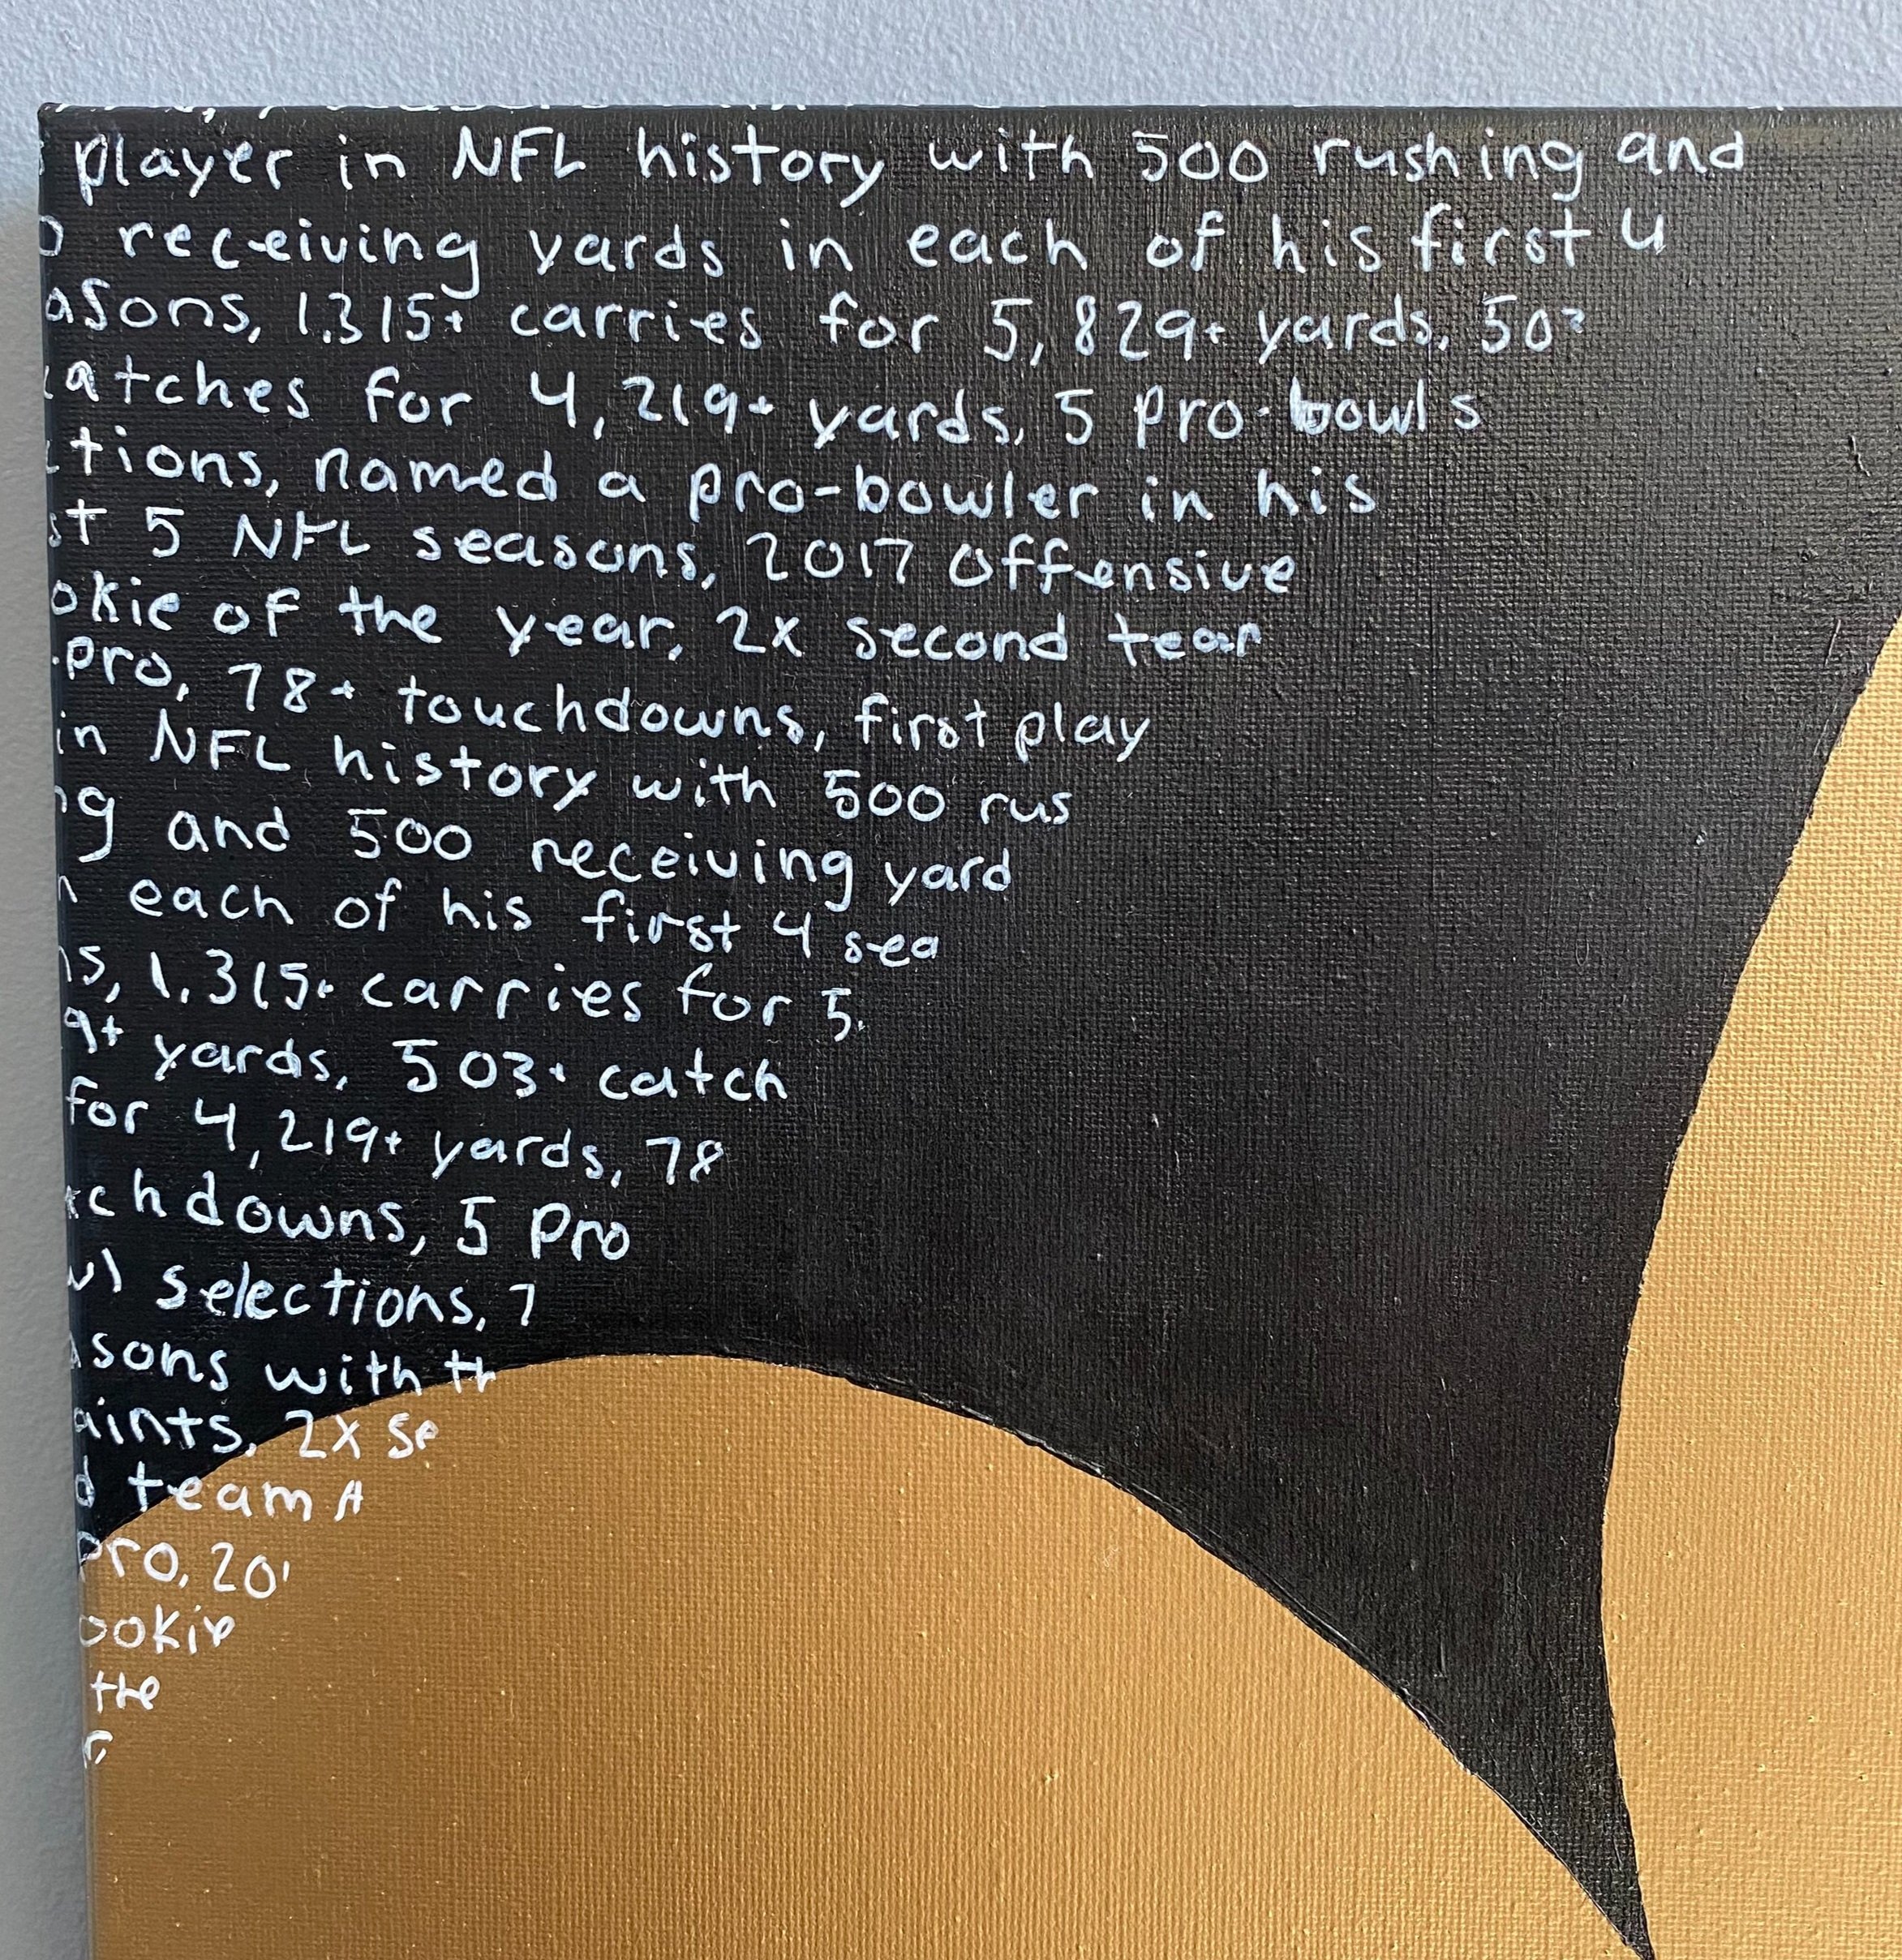 player in NFL history with 500 rushing and
receiving yards in each of his first 4
asons, 1,315+ carries for 5,829+ yards, 503
catches for 4,219+ yards, 5 Pro-bowls
ctions, named a pro-bowler in his
st 5 NFL seasons, 2017 offensive
okie of the year, 2x second team
-Pro, 78+ touchdowns, first play
in NFL history with 500 rus
ng and 500 receiving yard
n each of his first 4 sea
ns, 1,315+ carries for 5,
9+ yards, 503+ catch
for 4,219+ yards, 78
chdowns, 5 Pro
wl selections, 7
asons with th
aints, 2x se
d team A
Pro, 201
ookie
the
r,